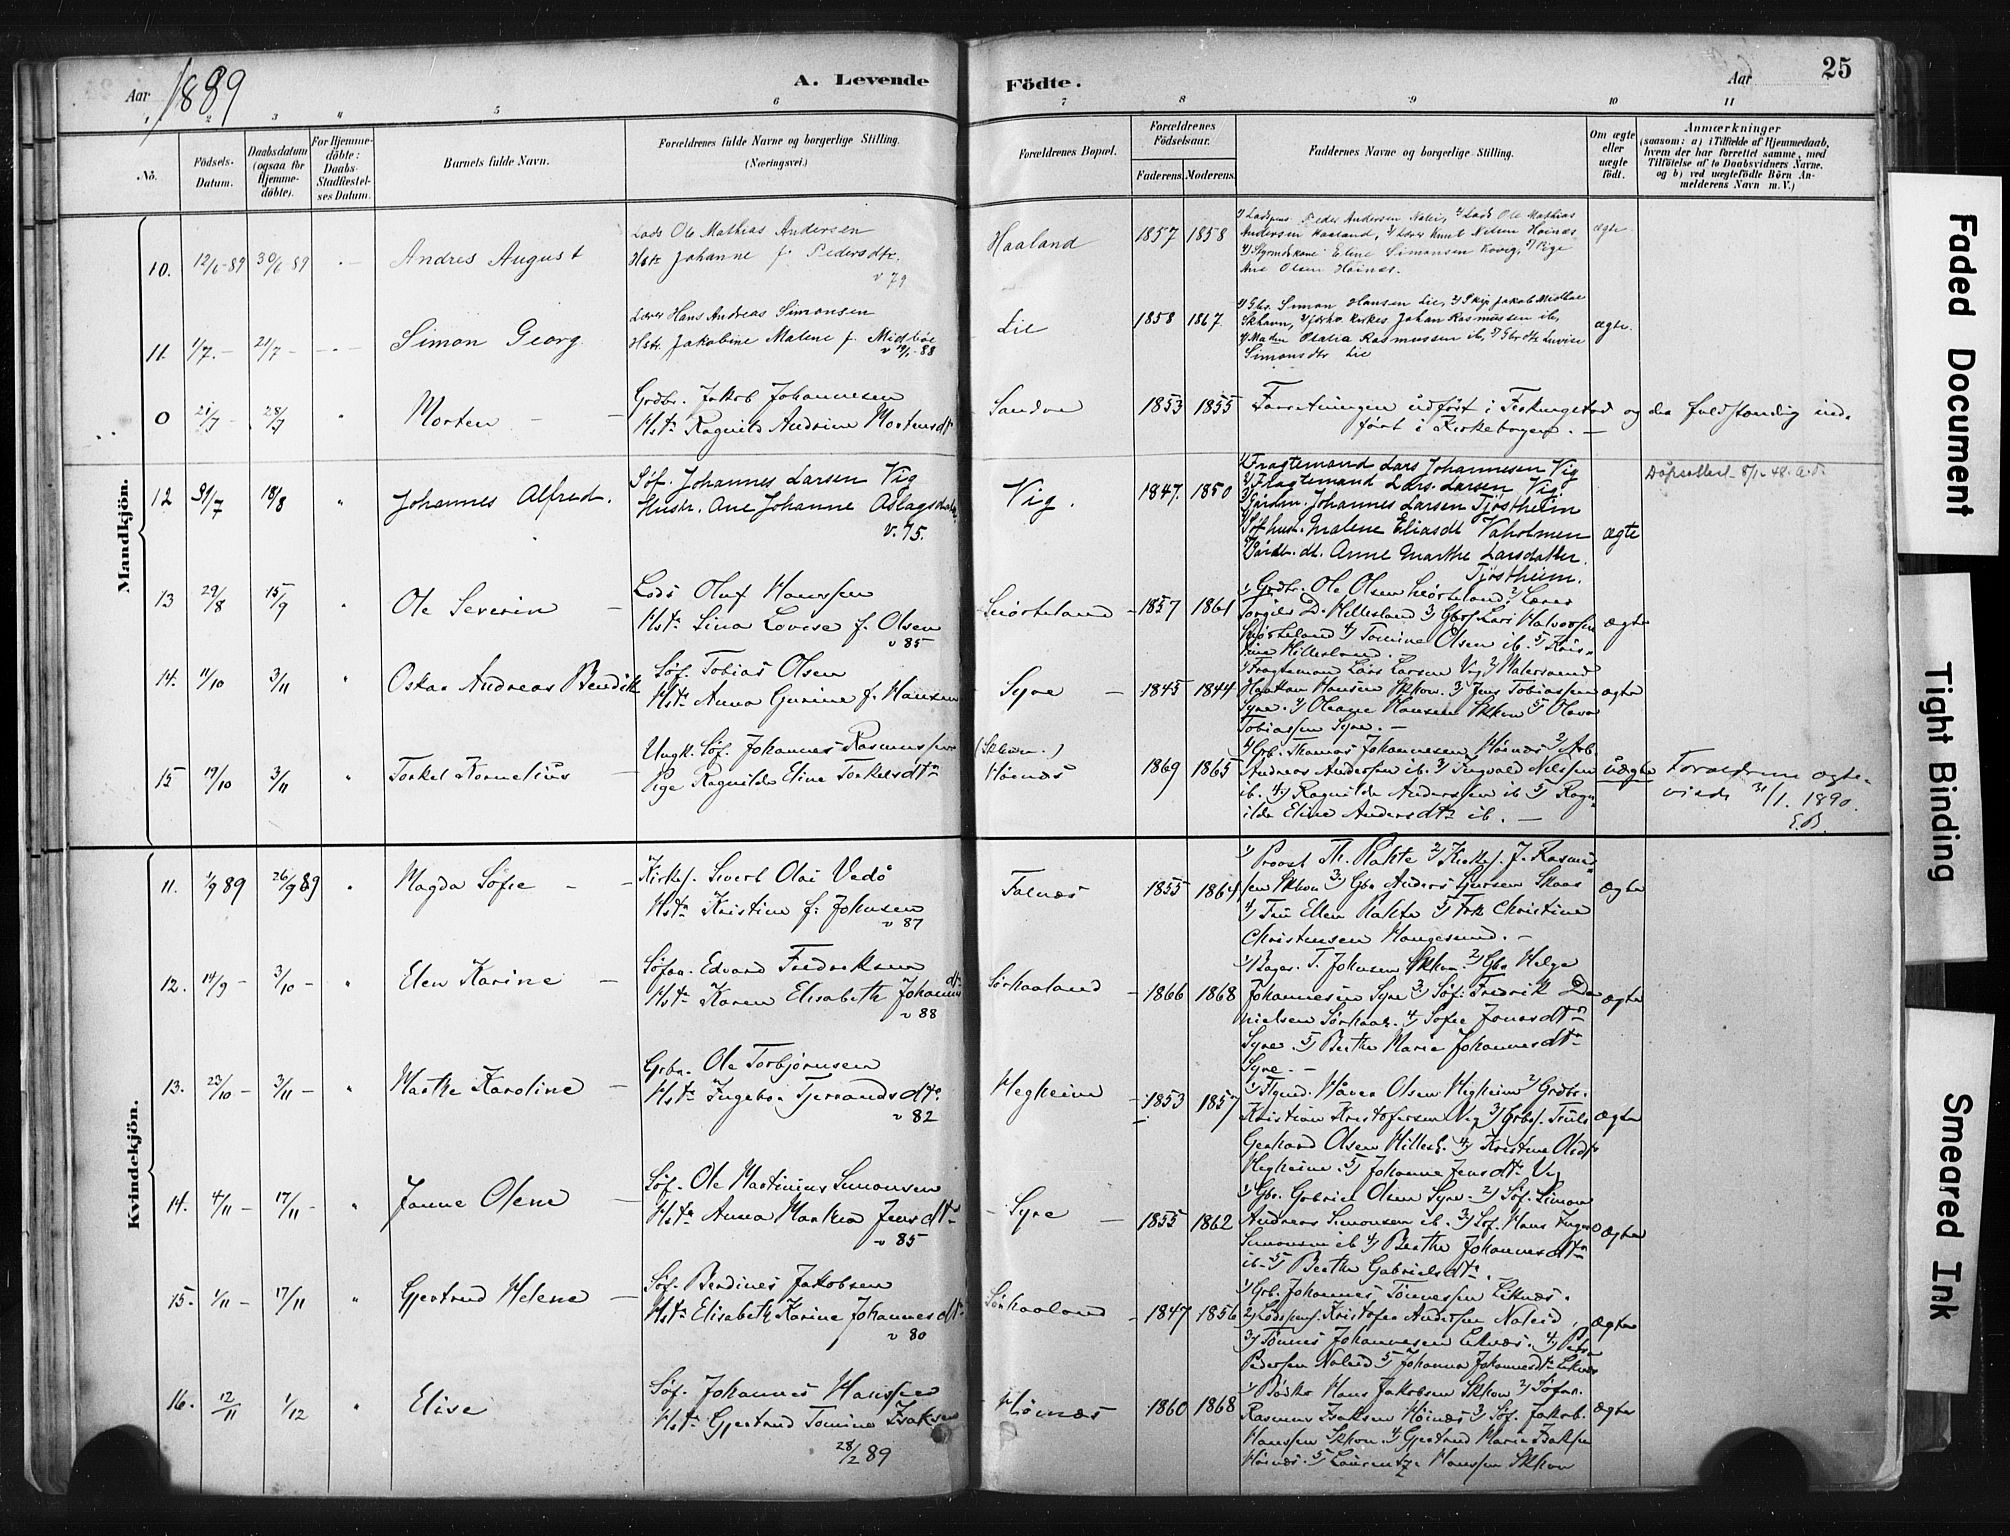 Aar 1889
A. Levende Födte.
Aar
25
1 2 3 4 5 6 7 8 9 10 11
No.
Födsels-Datum.
Daabsdatum (ogsaa for Hjemme-döbte).
For Hjemme-döbte: Daabs-Stadfæstel-ses Datum.
Barnets fulde Navn.
Forældrenes fulde Navne og borgerlige Stilling. (Næringsvei.)
Forældrenes Bopæl.
Forældrenes Födselsaar.
Faderens. Moderens.
Faddernes Navne og borgerlige Stilling.
Om ægte eller uægte födt.
Anmærkninger
(saasom: a) i Tilfælde af Hjemmedaab,
hvem der har forrettet samme, med
Tilföielse af to Daabsvidners Navne.
og b) ved uægtefödte Börn An-
melderens Navn m. V.)
Mandkjön.
10. 12/6-89 30/6 89 Andres August
Lods Ole Mathias Andersen
Hstr Johanne f. Pedersdtr.
v 79
Haaland 1857 1858
Peder Andersen Nalei, 2/ Lods Ole Mathias
Andersen Haaland, 3/ Lærer Knut Nilsen Höinæs
4/ Styrmdskone Eline Simonsen Kovig, 5/ Pige
Ane Olsen Höinæs.
ægte
11. 1/7 - 21/7 - Simon Georg
Lærer Hans Andreas Simonsen
Hstr Jakobine Malene f. Midböe
88
Lie 1858 1867
1/ Gbr. Simon Hansen Lie, 2/ Skip Jakob Midböe
Skhavn, Johan Rasmussen ib,
4/ Madm Otalia Rasmussen ib, 5/ Gbrdtr Lovise
Simonsdtr Lie
ægte.
0 21/7 - 28/7 Morten
Grdbr. Jakob Johannesen
Hstr Ragnild Andrine Mortensdt
Sandve 1853 1855
Forretningen udfört i og der fuldstændig ind-
fört i Kirkebogen. -
12 31/7 18/8 Johannes Alfred.
Söf. Johannes Larsen Vig
Hustr. Ane Johanne Aslagsdatter.
v. 75.
Vig. 1847. 1850
1/ Fragtemand Lars Johannesen Vig
2/ Fragtemand Lars Larsen Vig
3/ Gårdm. Johannes Larsen Tjöstheim
4/ Söf hust. Malene Eliasdt Vaholmen
5/ Gårdb. dt. Anne Marthe Larsdatter
Tjöstheim.
ægte
Dåpsattest 8/1-48.
13 29/8 15/9 Ole Severin
Lods Oluf Hanssen
Hstr Sina Lovise f. Olsen
v 85
1857 1861
1/ Grdbr. Ole Olsen 2/ Lærer
Torgils D. Hillesland 3/ Lars Halvorsen
4/ Tomine Olsen ib. 5/ Kris-
tine Hillesland. -
ægte
14. 11/10 3/11 Oskar Andreas Bendik
Söf. Tobias Olsen
Hstr Anna Gurine f. Hansen
Syre 1845 1844
1/ Fragteman Lars Larsen Vig 2/ Matersvend
Haakon Hansen Skhvn. 3/ Jens Tobiassen
Syre. 4/ Oleane Hansen Skhvn 5/ Olava
Tobiassen Syre. -
ægte
15 19/10 3/11 Torkel Kornelius
Ungk. Söf. Johannes Rasmussen (Skhavn.)
Pige Ragnilde Eline Torkelsdtr
Höinæs 1869 1865
1/ Grb. Thomas Johannesen Höinæs 2/ Arb.
Andreas Andersen ib. 3/ Ingvald Nilssen
ib. 4/ Ragnilde Anderssen ib 5/ Rag-
ilde Eline Andersdtr ib. -
uægte
Forældrene ægte-
viede 31/1. 1890.
E.B.
Kvindekjön.
11. 1/9 89 26/9 89 Magda Sofie
Kirkes. Sivert Olai Vedö
Hstr Kristine f. Johnsen
v 87
Falnæs 1855 1864
1/ Provst Th. Rakte 2/ Kirkes. J. Rasmus-
sen Skhvn 3/ Gbr Anders Sjursen Skaar
4/ Fru Ellen Rakte 5/ Frk Christine
Christensen Haugesund. -
ægte
12. 14/9 - 3/10 - Elen Karine
Söfar. Edvard Fredriksen
Hstr Karen Elisabeth Johannesdtr
v 88
Sörhaaland 1866 1868
1/ Bager. T. Johnsen Skhvn. 2/ Gbr Helge
Johannesen Syre 3/ Söf. Fredrik Da-
nielsen Sörhaal. 4/ Sofie Jonasdtr
Syre 5/ Berthe Marie Johannesdtr
Syre. -
ægte
13. 23/10 - 3/11 - Marthe Karoline
Grbr. Ole Torbjörnsen
Hstr Ingebor Tjerandsdtr.
v 82
Hegheim 1853 1857
1/ Håver Olsen Hegheim 2/ Grdbr.
Kristian Kristofersen Vig 3/ Truls
Gerhard Olsen Hillesl. 4/ Kristine Olsdtr
Hegheim. 5/ Johanne Jensdtr Vig
ægte
14. 4/11 - 17/11 - Janne Olene
Söf. Ole Martinius Simonsen
Hstr Anna Marthea Jensdtr
v 85
Syre 1855 1862
1/ Gbr. Gabriel Olsen Syre. 2/ Söf. Simon
Andreas Simonsen ib. 3/ Söf. Hans Inger
Simonsen ib 4/ Berthe Johannesdtr
ib. 5/ Berthe Gabrielsdtr.
ægte
15. 1/11 - 17/11 Gjertrud Helene
Söf. Berdines Jakobsen
Hstr Elisabeth Karine Johannesdtr
v 80
Sörhaaland 1847 1856
1/ Grb. Johannes Tönnessen Liknæs.
2/ Kristofer Andersen Naleid.
3/ Tönnes Johannesen Liknæs. 4/ Petra
Pedersen Naleid 5/ Johanna Johannesdtr Liknæs
ægte
16. 12/11 1/12 Elise
Söf. Johannes Hanssen
Hstr Gjertrud Tomine Isaksen
28/2 89
Höinæs 1860 1868
1/ Bödker Hans Jakobsen Skhvn 2/ Söfar.
Rasmus Isaksen Höinæs 3/ Söf. Jakob.
Hanssen Skhvn. 4/ Gjertrud Marie Isaksen
Höinæs. 5/ Laurentze Hanssen Skhvn
ægte
Faded Document
Tight Binding
Smeared Ink